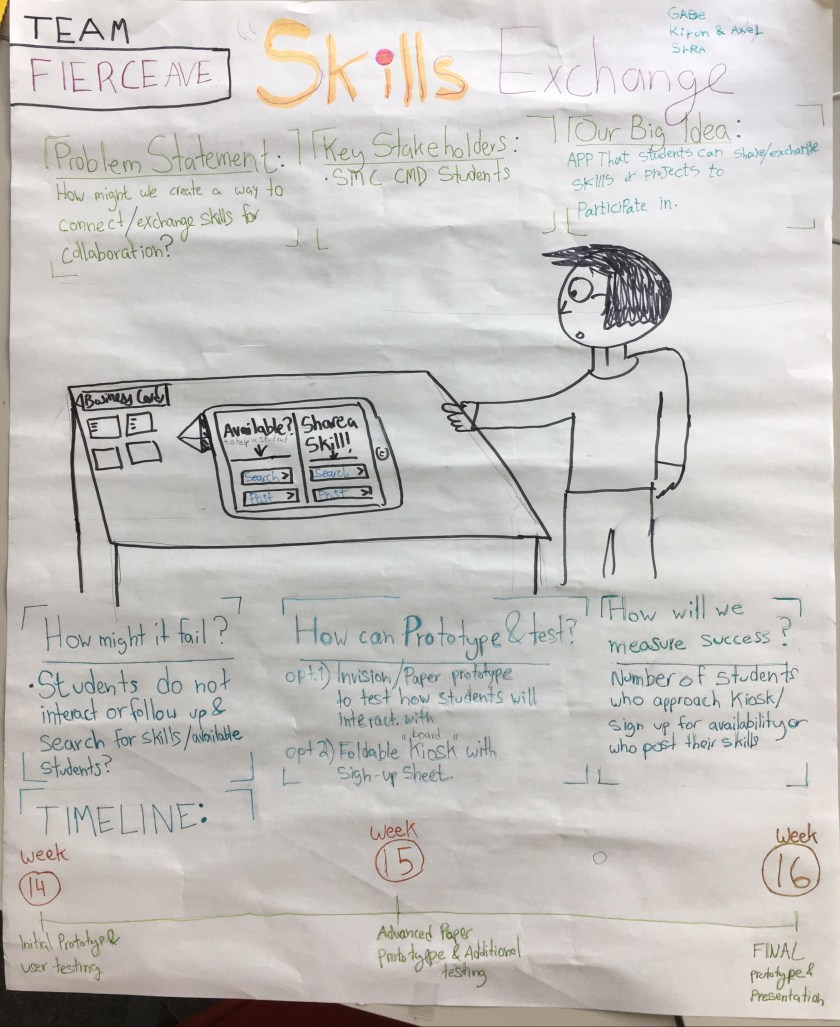 TEAM
FIERCEAVE
"Skills Exchange
GABe
Kiron & Axel
SARA
Problem Statement:
How might we create a way to
connect/exchange skills for
collaboration?
Key Stakeholders:
• SMC CMD Students
Our Big Idea:
APP That students can share/exchange
skills or projects to
Participate in.
Business Cards
Available?
to help a student
Search >
Post >
Share a
Skill!
Search >
Post >
How might it fail?
• Students do not
interact or follow up &
Search for skills/available
students?
How can Prototype & test?
opt.1) Invision/Paper prototype
to test how students will
interact with
opt 2) Foldable "board
Kiosk" with
Sign-up Sheet.
How will we
measure success?
Number of Students
who approach Kiosk/
sign up for availability or
who post their skills
TIMELINE:
Week
14
Initial Prototype &
user testing
Week
15
Advanced Paper
Prototype & Additional
testing
Week
16
FINAL
Prototype &
Presentation